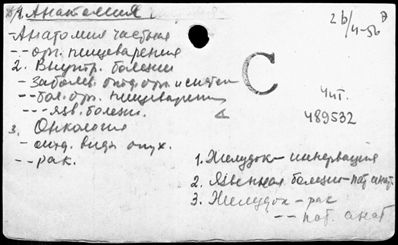 1. Анатомия
- Анатомия частная
-- орг. пищеварения
2. Внутр. болезни
- заболев. отд. орг. и систем
-- бол. орг. пищеварения
--- язв. болезнь.
3. Онкология
- отд. виды опух.
-- рак.
26/II-56
С
Чит.
489532
1. Желудок - иннервация
2. Язвенная болезнь - пат. анат.
3. Желудок - рак
-- пат. анат